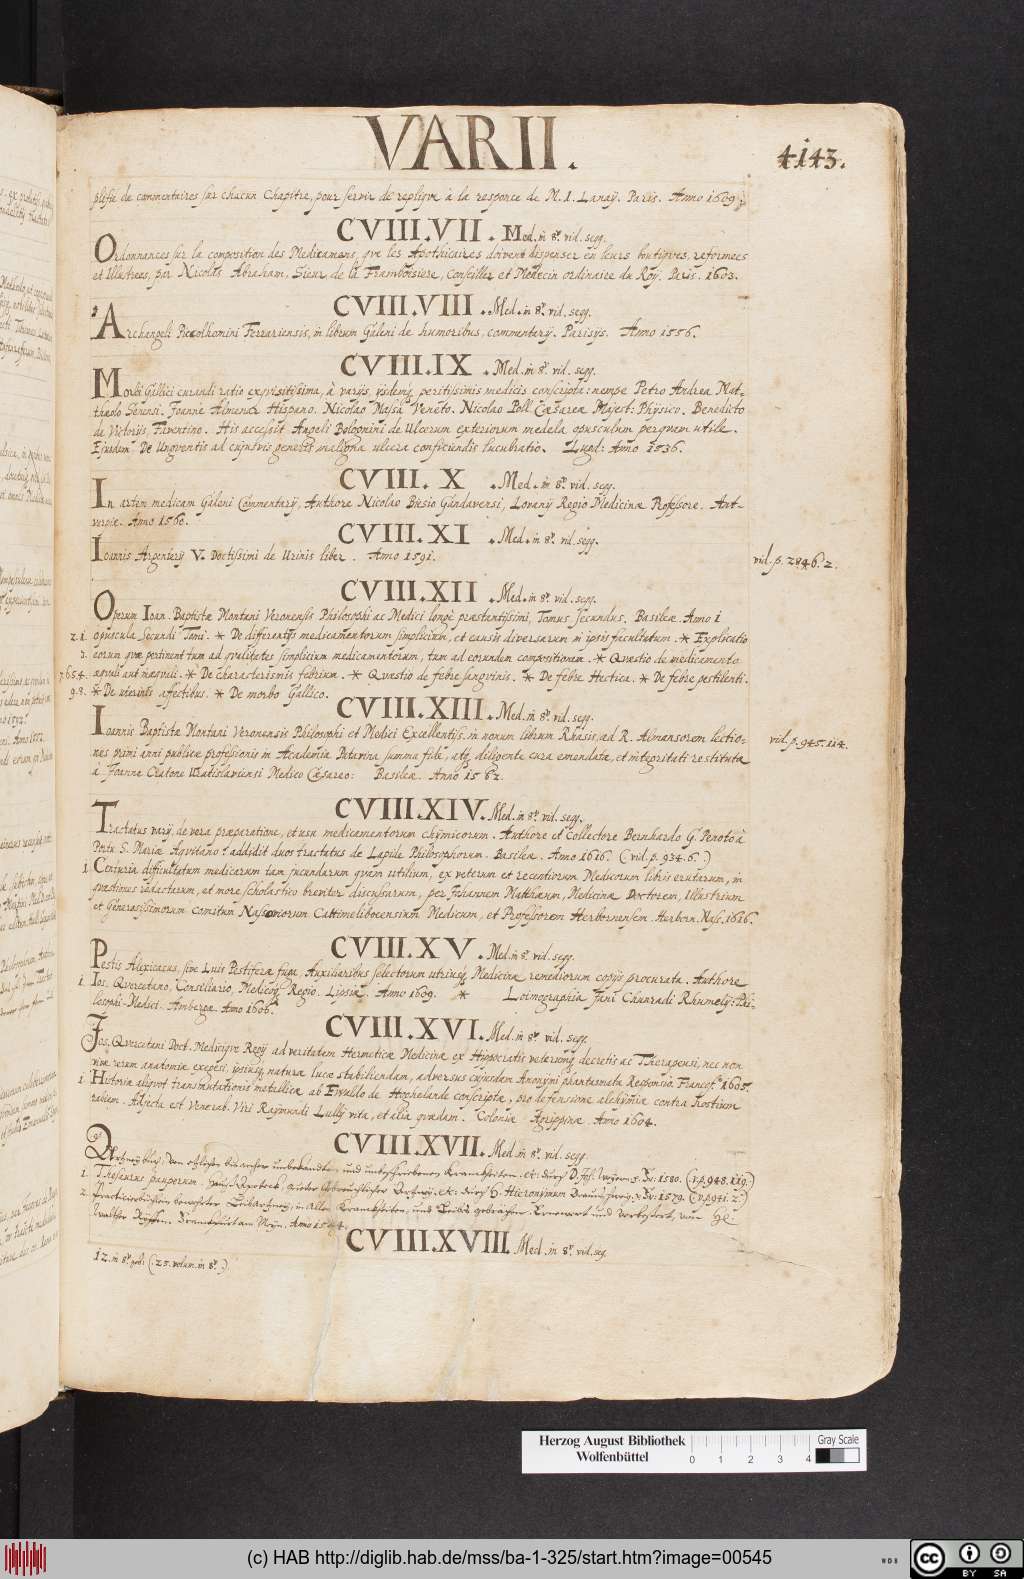 VARII.
4143.
plifié de commentaires sur chacun Chapitre, pour servir de replique à la responce de M. I. Lanay. Paris. Anno 1609.
CVIII.VII. Med. in 8º. vid. segg.
Ordonnances sur la composition des Medicamens, que les Apothicaires doivent dispenser en leurs boutiques, reformees
et illustrees, par Nicolas Abraham, Sieur de la Framboisiere, Conseiller et Medecin ordinaire du Roy. Paris. 1603.
CVIII.VIII. Med. in 8º. vid. segg.
Archangeli Piccolhomini Ferrariensis, in librum Galeni de humoribus, commentarij. Parisijs. Anno 1556.
CVIII.IX. Med. in 8º. vid. segg.
Morbi Gallici curandi ratio exquisitissima, à varijs, ijsdemq peritissimis medicis conscripta: nempe Petro Andrea Mat-
thæolo Senensi. Joanne Almenar Hispano. Nicolao Massa Veneto. Nicolao Poll Cæsareæ Majest: Physico. Benedicto
de Victorijs, Faventino. His accessit Angeli Bolognini de Ulcerum exteriorum medela opusculum perquam utile.
Ejusdem De Unguentis ad cujusvis generis maligna ulcera conficiendis lucubratio. Lugd: Anno 1536.
CVIII. X. Med. in 8º. vid. segg.
In artem medicam Galeni Commentarij, Authore Nicolao Biesio Gandavensi, Lovanij Regio Medicinæ Professore. Ant-
verpiæ. Anno 1560.
CVIII.XI. Med. in 8º. vid. segg.
Ioannis Argenterij V. Doctissimi de Urinis liber. Anno 1591.
vid. p. 2846. 2.
CVIII.XII. Med. in 8º. vid. segg.
Operum Ioan. Baptistæ Montani Veronensis Philosophi ac Medici longè præstantissimi, Tomus secundus. Basileæ. Anno
2. 1. opuscula Secundi Tomi. * De differentijs medicamentorum simplicium, et causis diversarum in ipsis facultatum. * Explicatio
3. eorum quæ pertinent tum ad qualitates simplicium medicamentorum, tum ad eorundem compositionem. * Quæstio de medicamento
7.6.5.4. æquali aut inæquali. * De characterismis febrium. * Quæstio de febre sanguinis. * De febre Hectica. * De febre pestilenti.
9. 8. * De uterinis affectibus. * De morbo Gallico.
CVIII.XIII. Med. in 8º. vid. segg.
Ioannis Baptistæ Montani Veronensis Philosophi et Medici Excellentiss. in nonum librum Rhasis, ad R. Almansorem lectio-
nes primi anni publicæ professionis in Academia Patavina summa fide, atq diligente cura emendatæ, et integritati restitutæ
à Joanne Cratone Wratislaviensi Medico Cæsareo: Basileæ. Anno 1562.
vid. p. 945. 114.
CVIII.XIV. Med. in 8º. vid. segg.
Tractatus varij, de vera præparatione, et usu medicamentorum chymicorum. Authore et Collectore Bernhardo G. Penoto à
Portu S. Mariæ Aquitano: addidit duos tractatus de Lapide Philosophorum. Basileæ. Anno 1616. (vid. p. 934. 6.)
1. Centuria difficultatum medicarum tam jucundarum quàm utilium, ex veterum et recentiorum Medicorum libris erutarum, in
quæstiones redactarum, et more scholastico breviter discussarum, per Johannem Matthæum, Medicinæ Doctorem, Illustrium
et Generosissimorum comitum Nassoviorum Cattimelibocensium Medicum, et Professorem Herbornensem. Herborn. Nass. 1616.
CVIII.XV. Med. in 8º. vid. segg.
Pestis Alexicacus, sive Luis Pestiferæ fuga, Auxiliaribus selectorum utriusq Medicinæ remediorum copijs procurata. Authore
1. Ios. Quercetano, Consiliario, Medicoq Regio. Lipsiæ. Anno 1609. * Loimographia Jani Chunradi Rhumelij Phi-
losophi-Medici. Ambergæ. Anno 1606.
CVIII.XVI. Med. in 8º. vid. segg.
Jos. Quercetani Doct. Medicique Regij ad veritatem Hermeticæ Medicinæ ex Hippocratis veterumq decretis ac Therapeusi, nec non
vivæ rerum anatomiæ exegesi, ipsiusq naturæ luce stabiliendam, adversus cujusdam Anonymi phantasmata Responsio. Francof. 1605.
1. Historiæ aliquot transmutationis metallicæ ab Ewaldo de Hoghelande conscriptæ, pro defensione alchymiæ contra hostium
rabiem. Adjecta est Venerab. Viri Raymundi Lullij vita, et alia quædam. Coloniæ Agrippinæ. Anno 1604.
CVIII.XVII. Med. in 8º. vid. segg.
Artzney buch, Von etlichen bis anher unbekandten, und unbeschriebenen Kranckheiten, etc: durch D. Joh. Weyern. F. Fr: 1580. (v.p.948.119.)
1. Thesaurus pauperum. Haus Apoteck, guter Gebreuchlicher Artzney, etc: durch H. Hieronymum Braunschweig. F. Fr: 1579. (v.p.941. 2.)
2. Practicierbüchlein bewehrter Leibartzney, in allen Kranckheiten, und Leibs gebrechen. Ernewert und verbessert, von
Walther Ryffen. Franckfurt am Meyn. Anno 1564.
CVIII.XVIII. Med. in 8º. vid. seg.
12. in 8º. (: 25. volum. in 8º. :)
Herzog August Bibliothek
Wolfenbüttel
0 1 2 3 4
Gray Scale
(c) HAB http://diglib.hab.de/mss/ba-1-325/start.htm?image=00545
WDB
cc BY SA